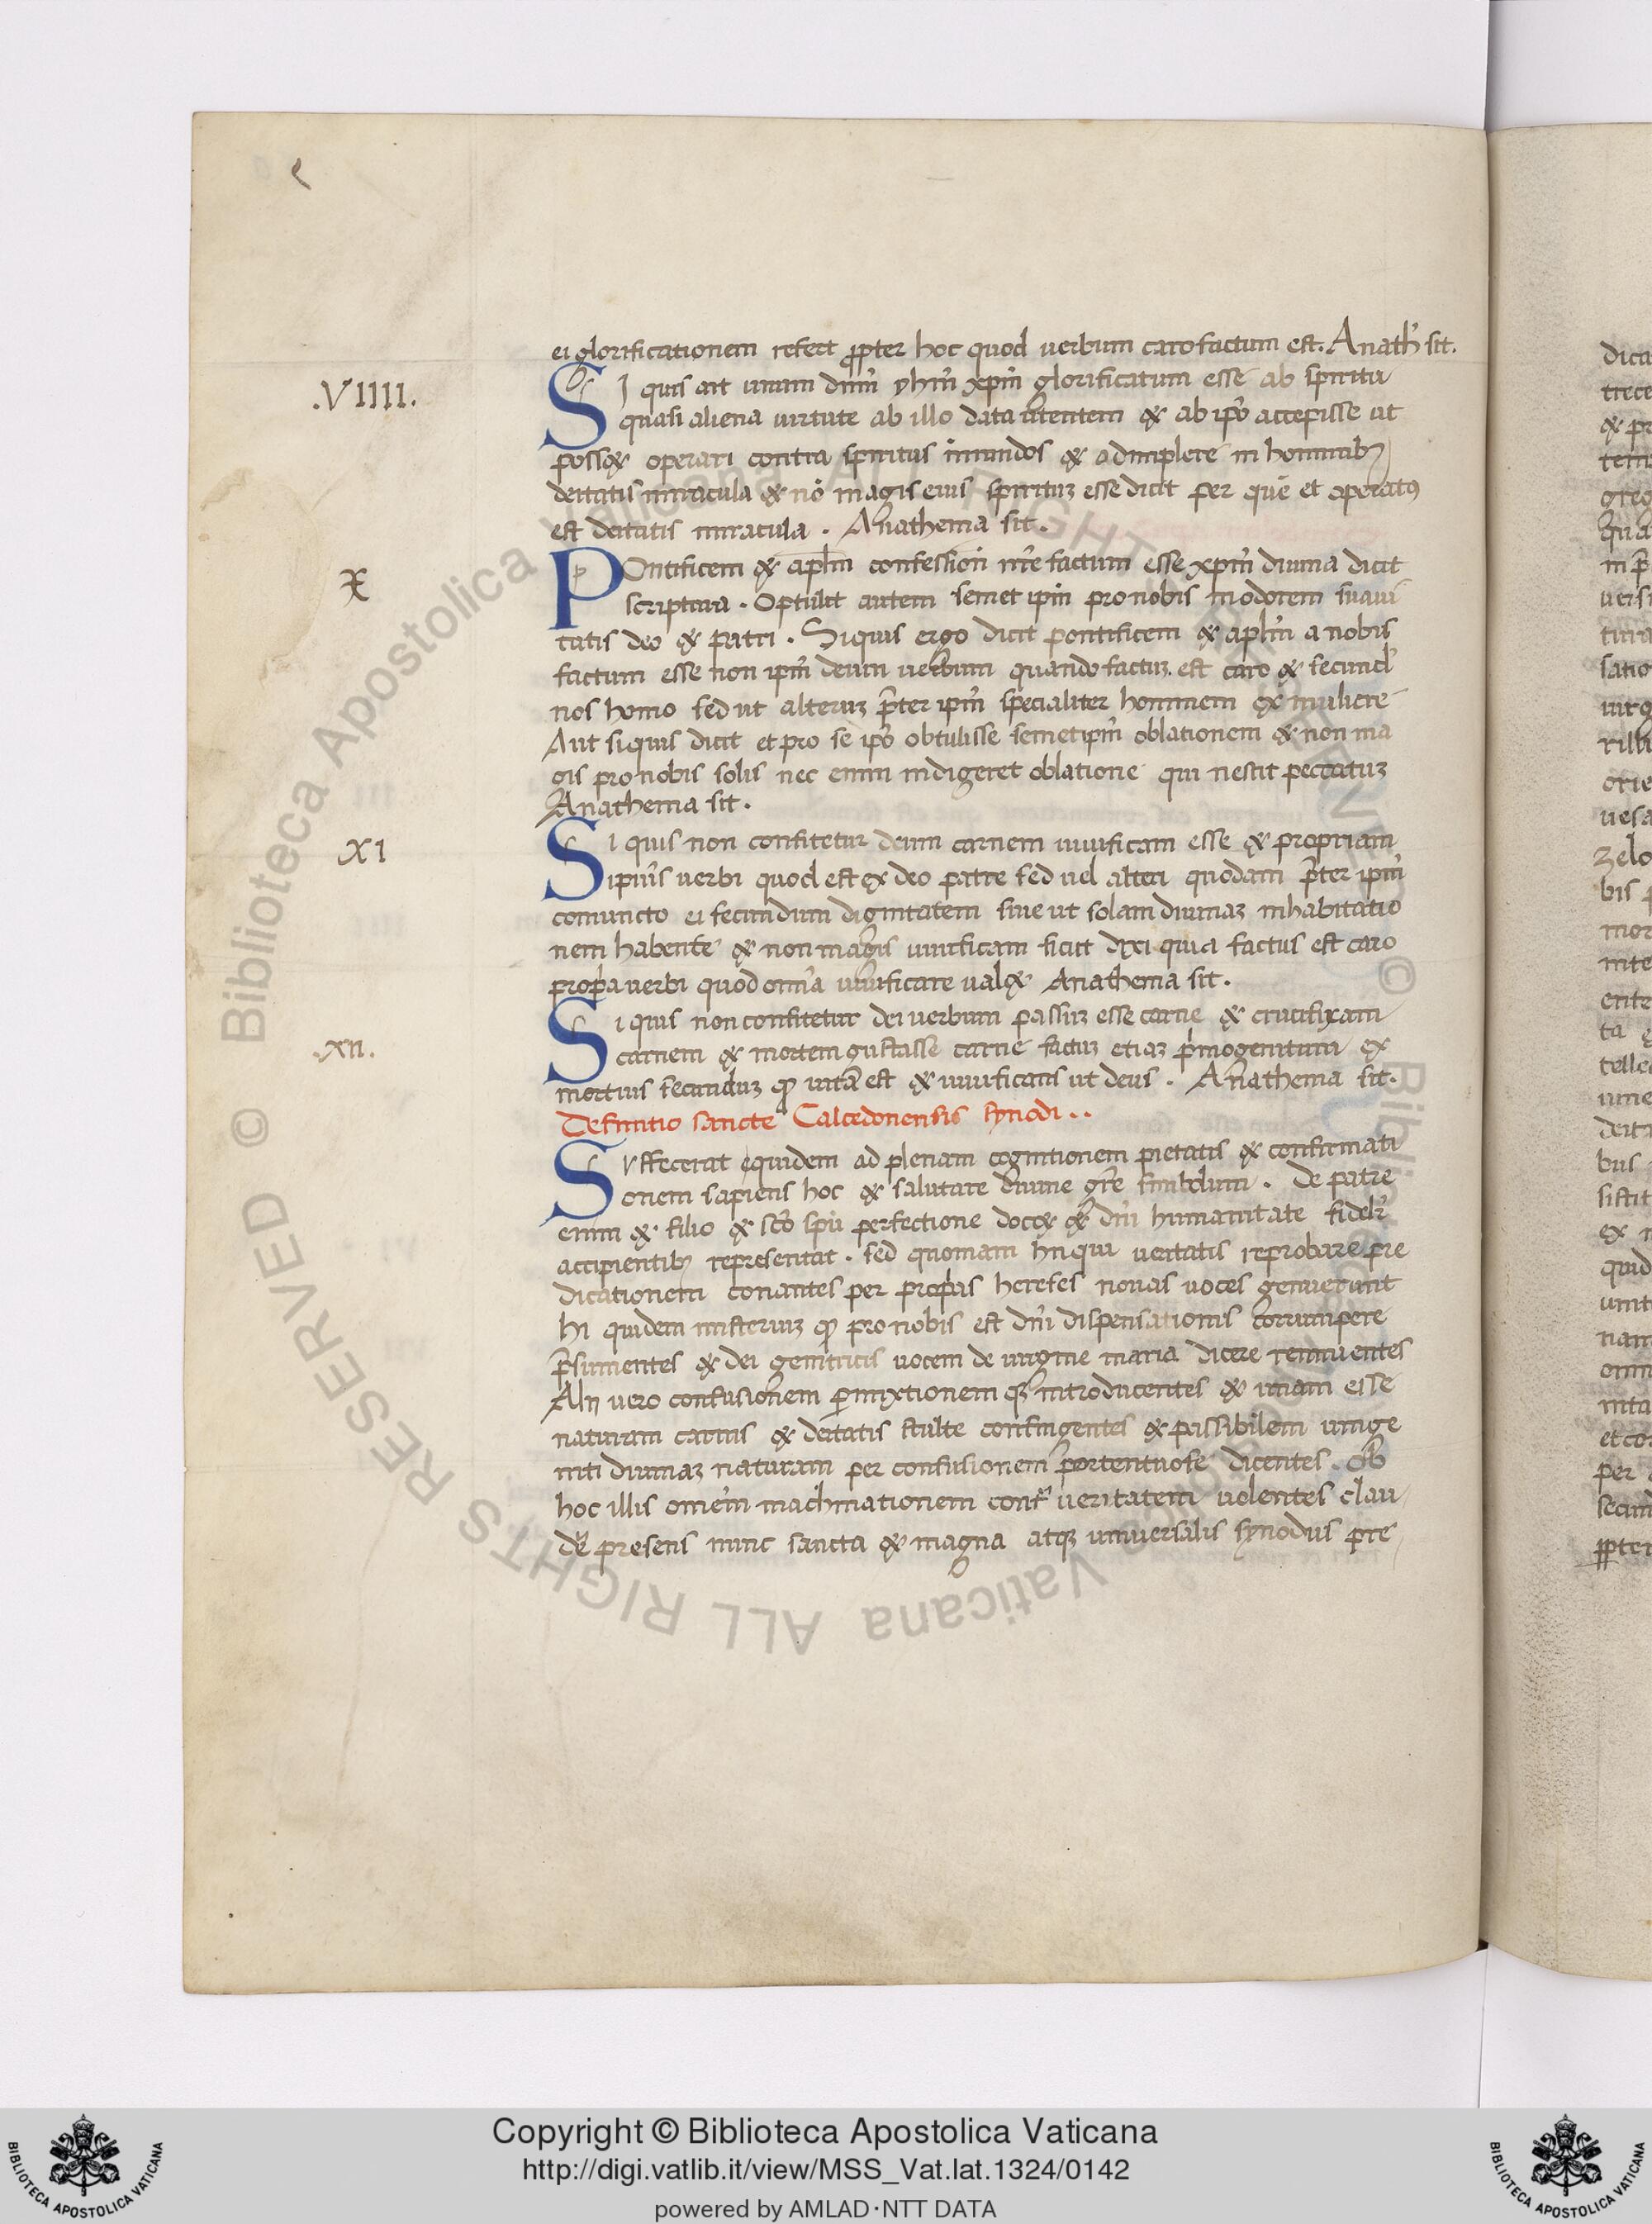 ei glorificationem refert ꝓpter hoc quod uerbum caro factum est. Anath̓ sit.
.VIIII.
SI quis ait unum dn̄m yhm̄ xp̄m glorificatum esse ab spiritu
quasi aliena uirtute ab illo data utentem & ab ip̄o accepisse ut
poss& operari contra spiritus inmundos & adimplere in hominibꝫ
deitatis miracula & nō magis eius spirituꝫ esse dicit per quē et operatꝰ
est deitatis miracula. Anathema sit.
X
POntificem & apl̄m confession nr̄e factum esse xp̄m diuina dicit
scriptura. Optulit autem semet ipm̄ pro nobis in odorem suaui
tatis deo & patri. Siquis ergo dicit pontificem & apl̄m a nobis
factum esse non ipm̄ deum uerbum quando factuꝫ est caro & secund̓
nos homo sed ut alteruꝫ p̄ter ipm̄ specialiter hominem ex muliere
Aut siquis dicit et pro se ip̄o obtulisse semetipm̄ oblationem & non ma
gis pro nobis solis nec enim indigeret oblatione qui nescit peccatuꝫ
Anathema sit.
XI
SI quis non confitetur deum carnem uiuificam esse & propriam
ipiu̅s uerbi quod est ex deo patre sed uel alteri quodam p̄ter ipm̄
coniuncto ei secundum dignitatem siue ut solam diuinaꝫ inhabitatio
nem habente & non magis uiuificam sicut dixi quia factus est caro
prop̄a uerbi quod om̄ia uiuificare ual& Anathema sit.
.XII.
Si quis non confitetur dei uerbum passuꝫ esse carne & crucifixam
carnem & mortem gustasse carne factuꝫ etiaꝫ p̄mogenitum ex
mortuis secunduꝫ ꝙ uita est & uiuificans ut deus. Anathema sit.
Definitio sancte Calcedonensis synodi..
SVffecerat equidem ad plenam cognitionem pietatis & confirmati
onem sapiens hoc & salutare diuine gr̄e simbolum. De patre
enim & filio & sc̄o spū perfectione doc& & dn̄i humanitate fidelr̓
accipientibꝫ representat. sed quoniam hii qui ueritatis reprobare pre
dicationem conantes per prop̄as hereses nouas uoces genuerunt
hi quidem misteriuꝫ ꝙ pro nobis est dn̄i dispensationis corrumpere
p̄sumentes & dei genitricis uocem de uirgine maria dicere rennuentes
Alii uero confusionem ꝑmixtionem qꝫ introducentes & unam esse
naturam carnis & deitatis stulte confingentes & passibilem unige
niti diuinaꝫ naturam per confusionem portentuose dicentes. Ob
hoc illis omem̄ machinationem contr̓ ueritatem uolentes clau
de̅r presens nunc sancta & magna atqꝫ uniuersalis synodus pre
Copyright © Biblioteca Apostolica Vaticana
http://digi.vatlib.it/view/MSS_Vat.lat.1324/0142
powered by AMLAD·NTT DATA
BIBLIOTECA APOSTOLICA VATICANA
BIBLIOTECA APOSTOLICA VATICANA